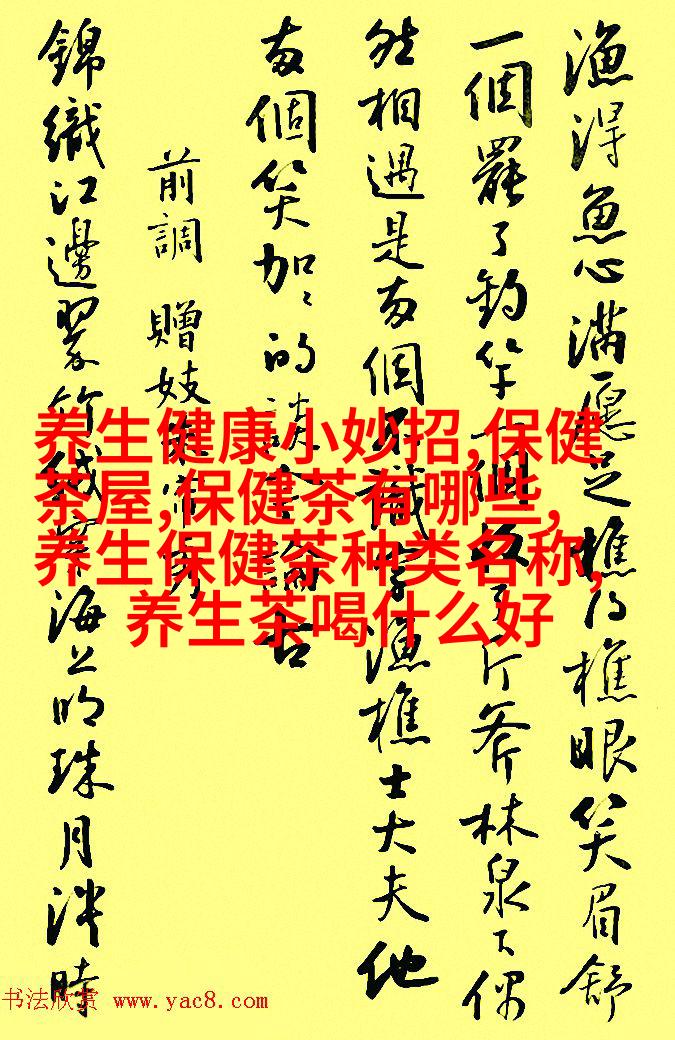 漁得魚心滿愿足樵得樵眼笑眉舒
一個罷了釣竿一個收了斤斧林泉下偶
然相遇是兩個不識字漁樵士大夫他
兩個笑加加的談今論古
前調 贈妓
錦織江邊翠竹絨穿海上明珠月淡時
养生健康小妙招,保健
茶屋,保健茶有哪些,
养生保健茶种类名称,
养生茶喝什么好
书法欣赏 www.yac8.com